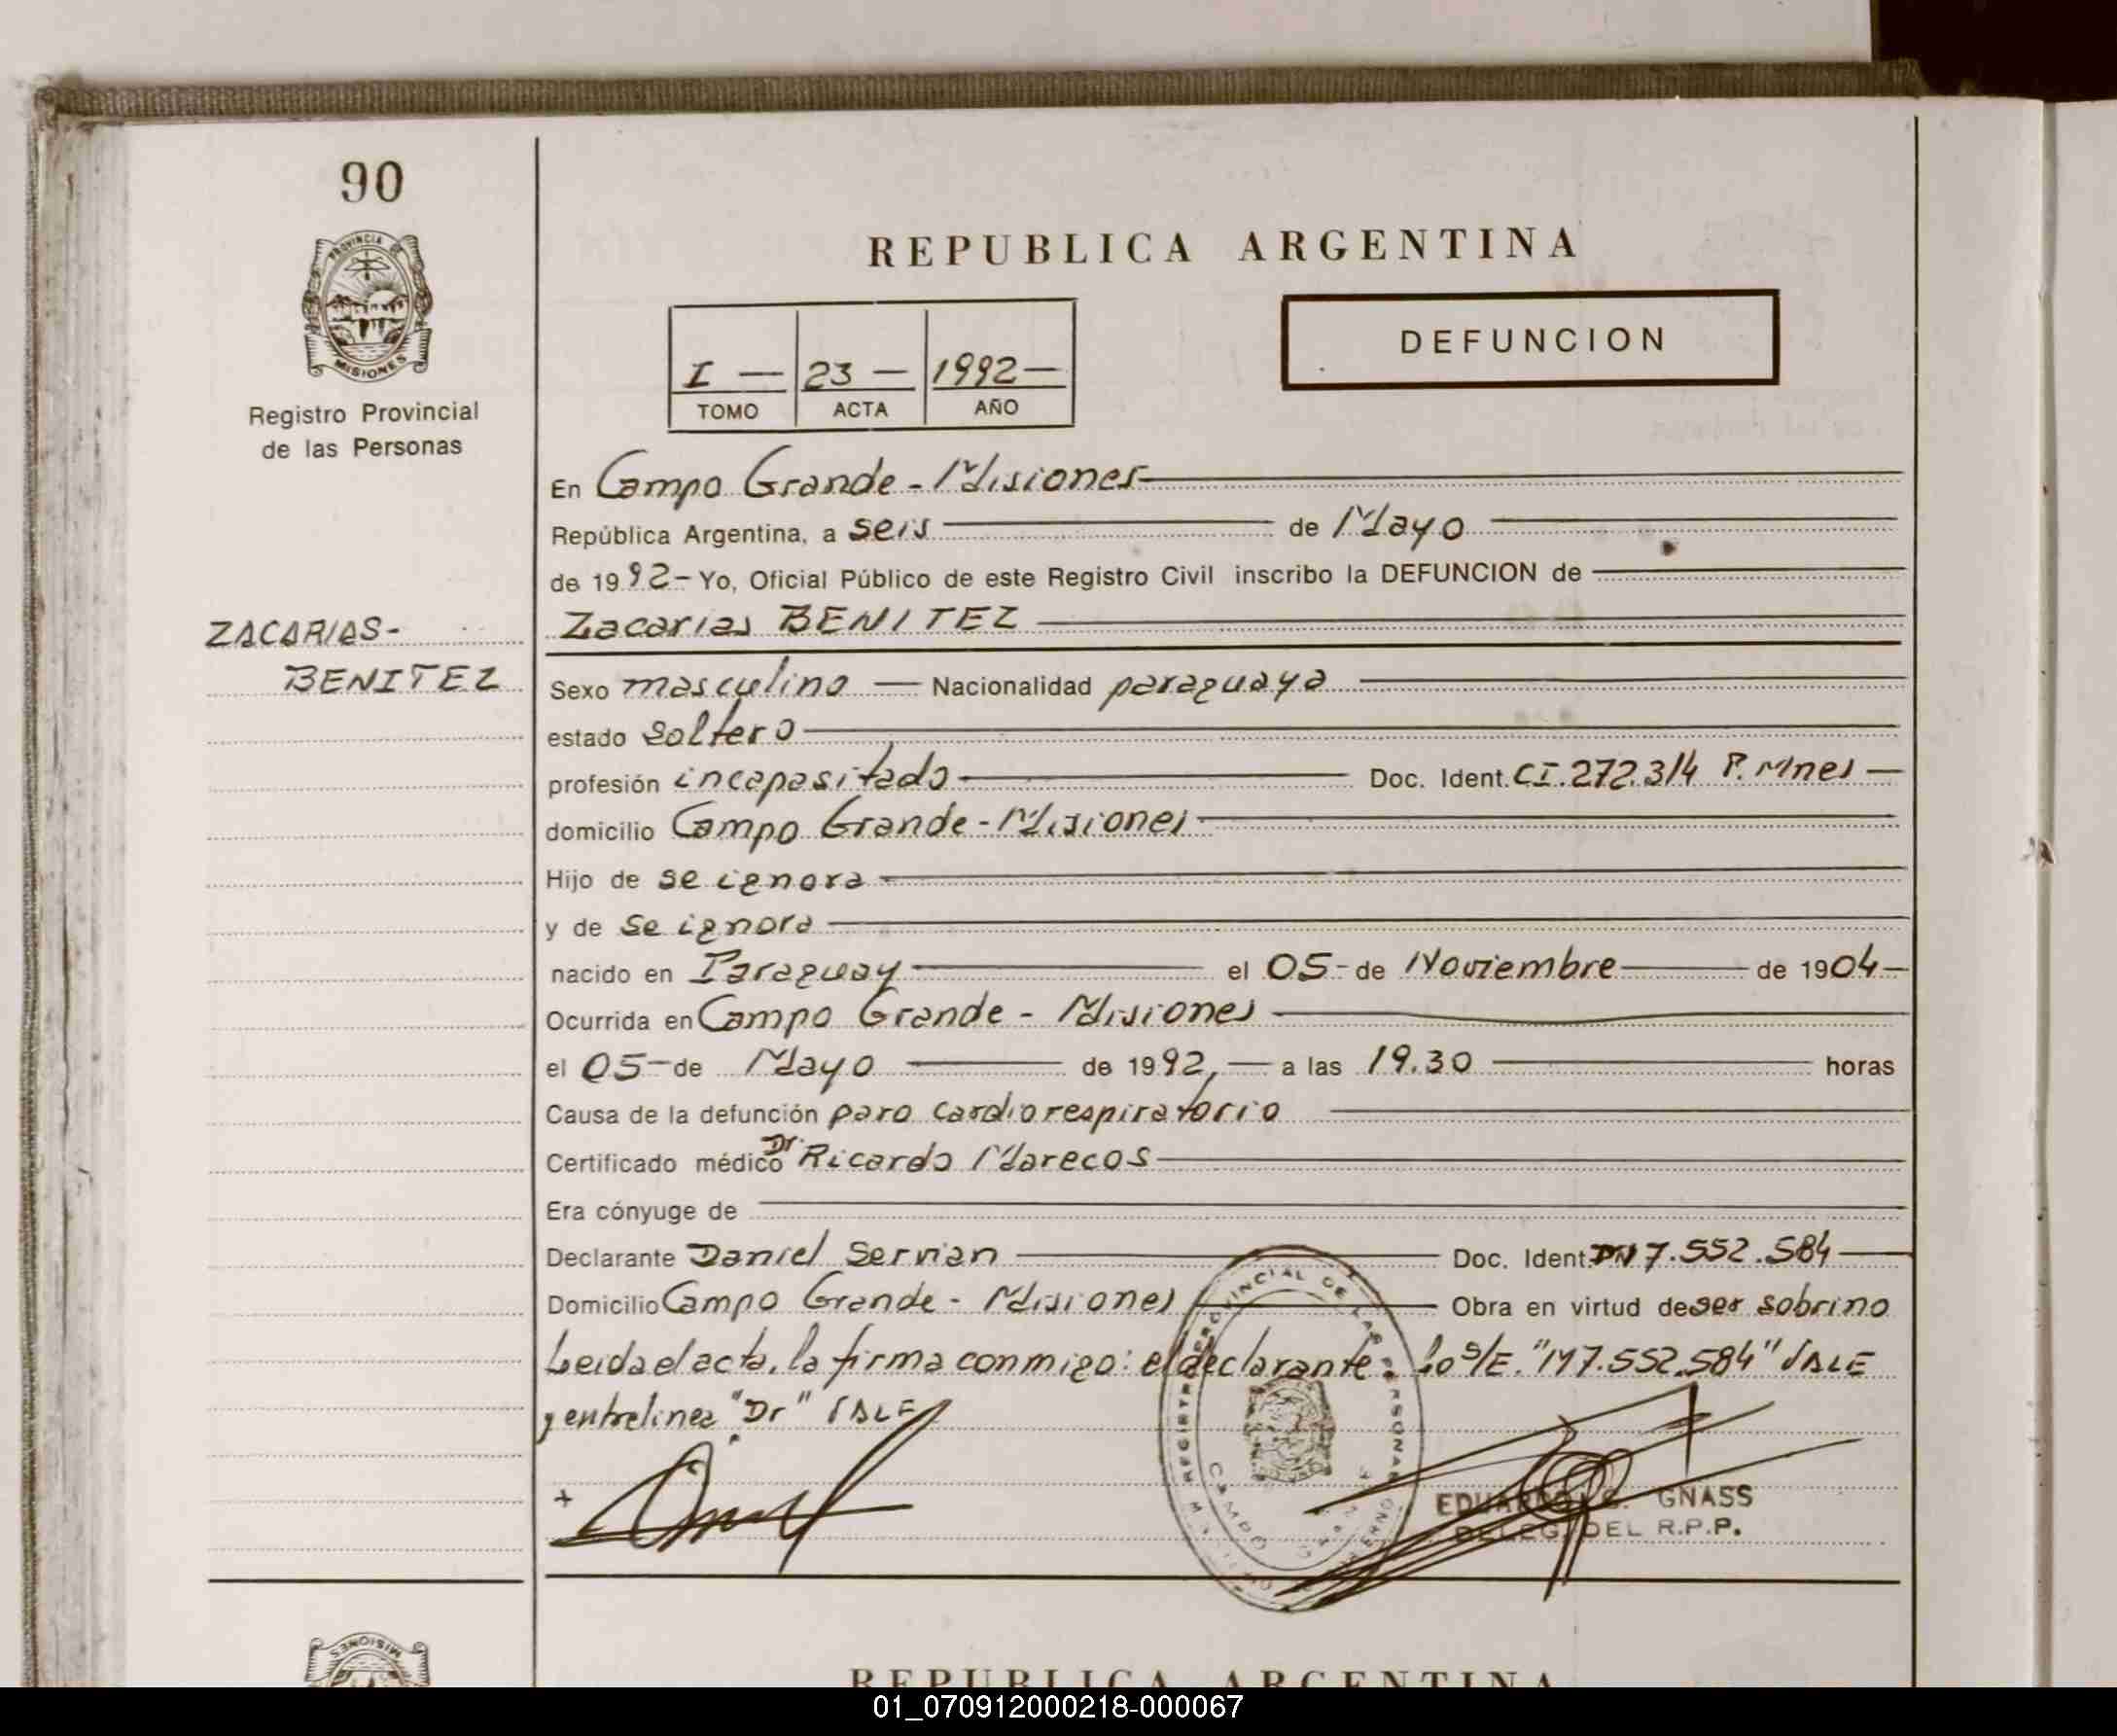 90
PROVINCIA DE
MISIONES
Registro Provincial
de las Personas
ZACARIAS-
BENITEZ
REPUBLICA ARGENTINA
I — 23 — 1992—
TOMO ACTA AÑO
DEFUNCION
En Campo Grande - Misiones
República Argentina, a seis de Mayo
de 1992- Yo, Oficial Público de este Registro Civil inscribo la DEFUNCION de
Zacarias BENITEZ
Sexo masculino — Nacionalidad paraguaya
estado soltero
profesión incapasitado Doc. Ident. CI.272.314 P. Mnes —
domicilio Campo Grande - Misiones
Hijo de se ignora
y de se ignora
nacido en Paraguay el 05- de Noviembre de 1904-
Ocurrida en Campo Grande - Misiones
el 05- de Mayo de 1992, — a las 19.30 horas
Causa de la defunción paro cardiorespiratorio
Certificado médico Dr. Ricardo Marecos
Era cónyuge de
Declarante Daniel Servian Doc. Ident. 7.552.584
Domicilio Campo Grande - Misiones Obra en virtud de ser sobrino
Leida el acta, la firma conmigo: el declarante. Lo s/E. "M7.552.584" VALE
y entrelinea "Dr" VALE
REGISTRO PROVINCIAL DE LAS PERSONAS
CAMPO
EDUARDO GNASS
DELEG. DEL R.P.P.
MISIONES
REPUBLICA ARGENTINA
01_070912000218-000067